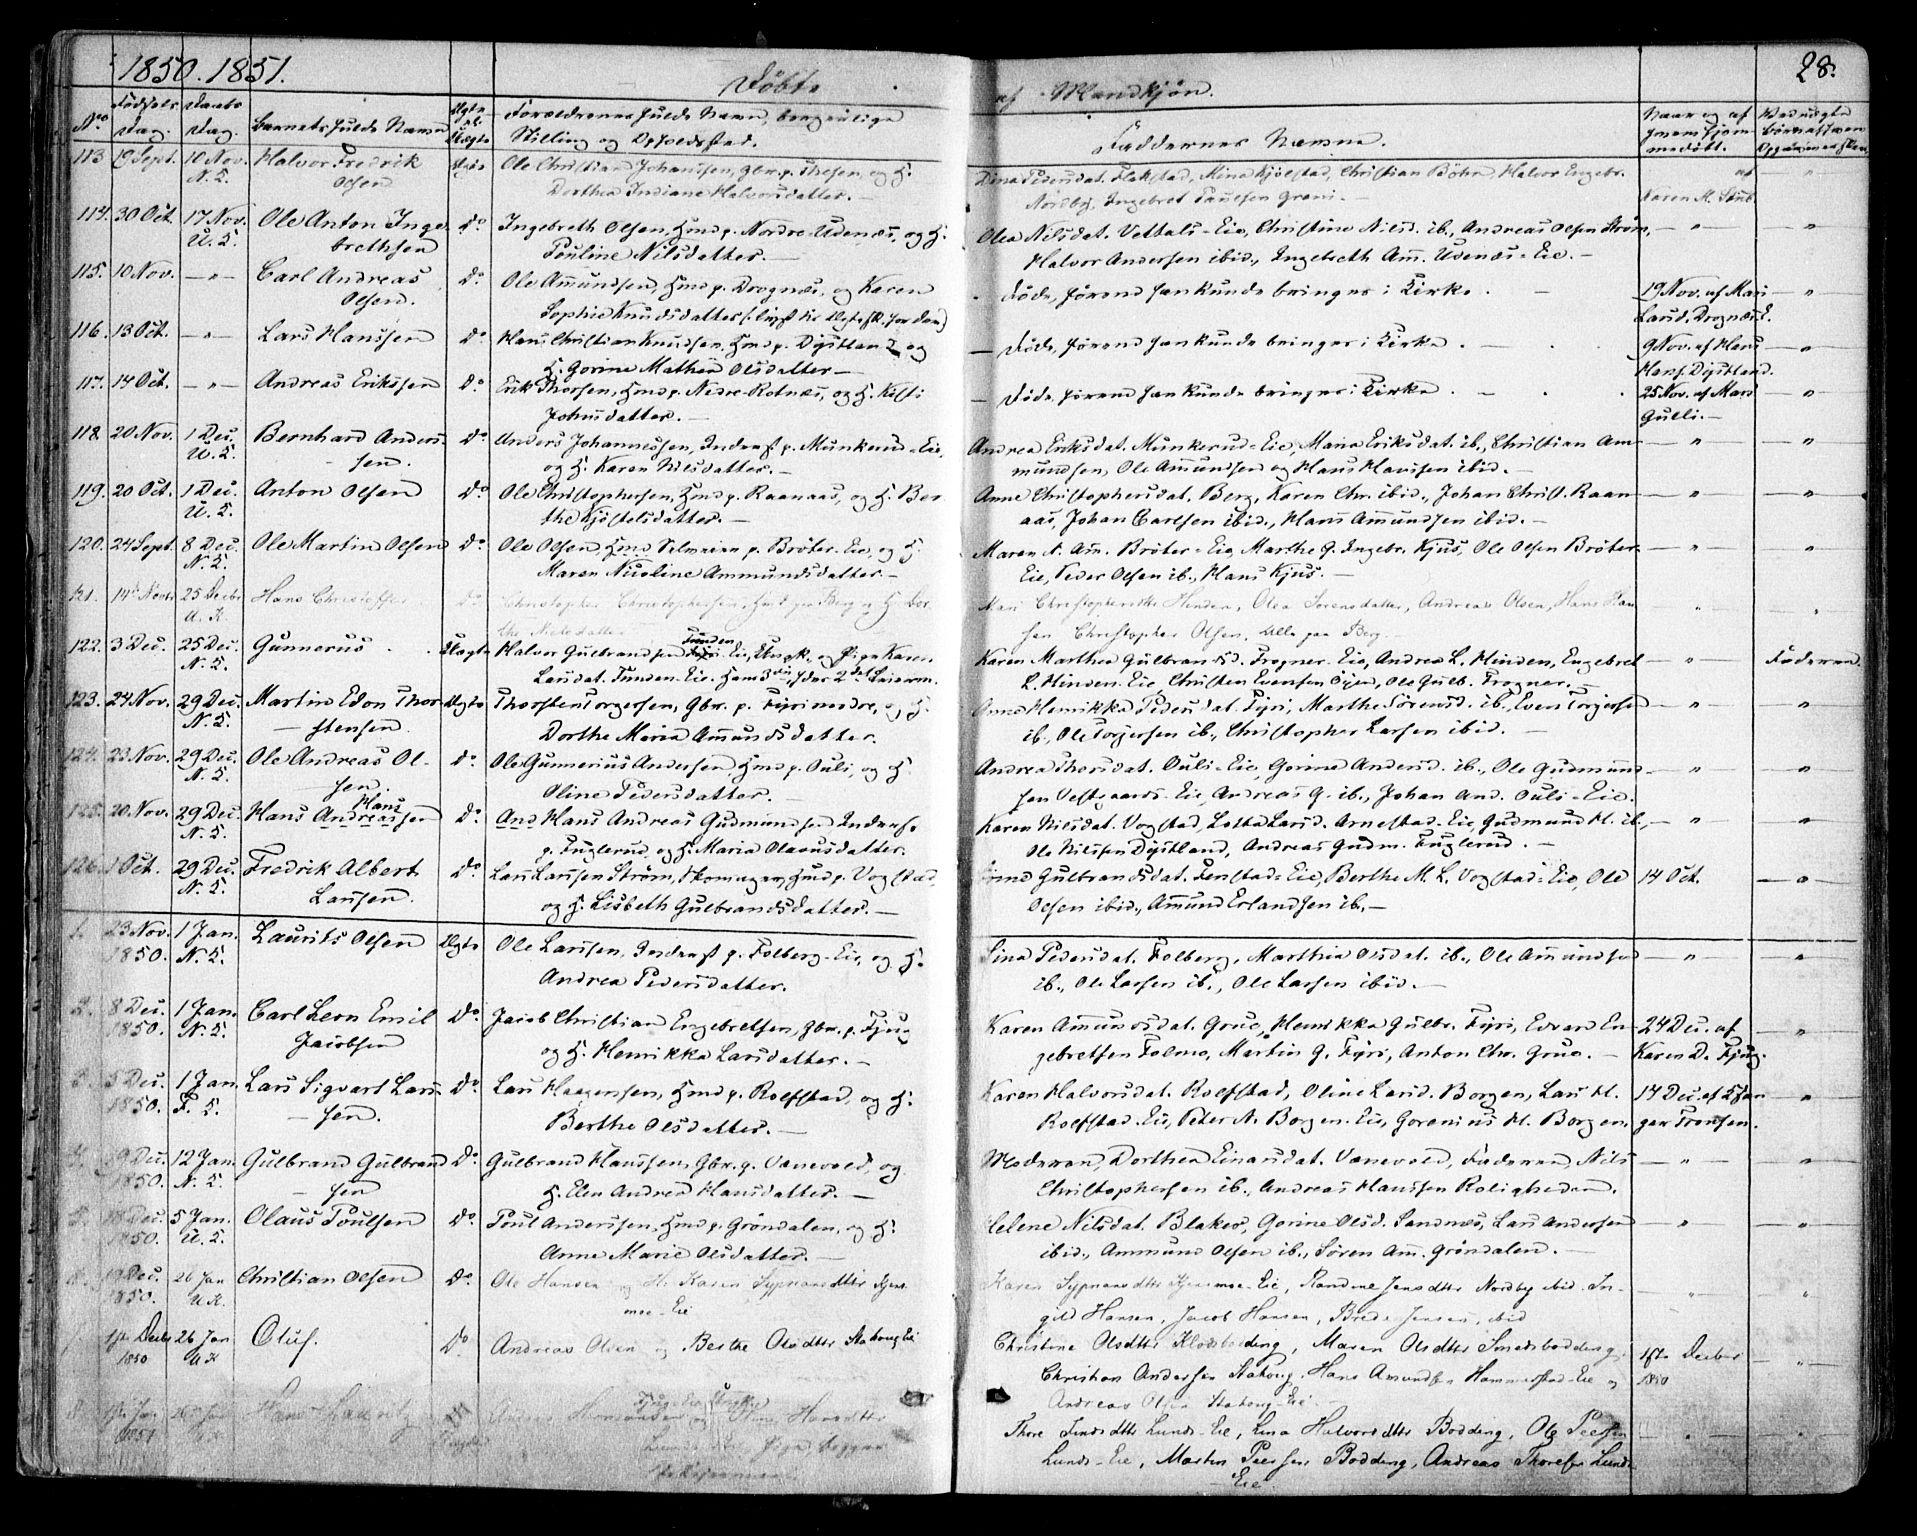 1850. 1851.
Døbte
af Mandkjøn.
28.
No
Fødsels Dag.
Daabs Dag.
Barnets fulde Navn
Forældrenes fulde Navn, borgerlige
Stilling og Opholdssted.
Faddernes Navne.
113 19 Sept. 10 Nov. Halvor Fredrik Ole Christian Johanssen, og H.
N. K. Olsen Dorthea Indiane Halvorsdatter. —
Dina Pedersdat. Flakstad, Mina Kjølstad, Christian Böhn, Halvor Engebr.
Nordby, Ingebret Paulsen
Karen M.
114. 30 Oct. 17 Nov. Ole Anton Inge- Do Ingebreth Olsen, Huusmd p. Nordre-Udenæs, og H.
U. K. brethsen Pauline Nilsdatter. —
Olea Nilsdat. Vettals-Eie, Christine Nilsd. ib., Andreas Olsen Strøm, — " — "
Halvor Andersen ibid., Ingebreth Am. Udenæs-Eie. —
115. 10 Nov. — " — Carl Andreas Do Ole Amundsen, Hmd p. Drognæs, og Karen
Olsen. Sophie Knudsdatter
Døde, førend han kunde bringes i Kirke. — 19 Nov. af Mari — "
Larsd. Drognæs E.
116. 13 Oct. — " — Lars Hanssen Do Hans Christian Knudsen, Hmd p. Dystland og
H. Gorine Mathea Olsdatter —
— Døde, førend han kunde bringes i Kirke. — 9 Nov. af Hans — "
Hans. Dystland.
117. 14 Oct. — " — Andreas Erikssen Do Erik Thorsen, Hmd p. Nedre-Rotnæs, og H. Kisti
Johnsdatter. —
— Døde, førend han kunde bringes i Kirke. — 25 Nov. af Mari — "
Gulli. —
118. 20 Nov. 1 Dec. Bernhard Anders- Do Anders Johannessen, Inderst p. Munkerud-Eie,
U. K. sen. og H. Karen Nilsdatter. —
Andrea Eriksdat. Munkerud-Eie, Maria Eriksdat. ib., Christian Am- — " — "
mundsen, Ole Amundsen og Hans Hanssen ibid. —
119. 20 Oct. 1 Dec. Anton Olsen Do Ole Christophersen, Hmd p. Raanaas, og H. Ber-
U. K. the Kjøstelsdatter. —
Anne Christophersdat. Berg, Karen Chr. ibid., Johan Christ. Raan- — " — "
aas, Johan Carlsen ibid., Hans Amundsen ibid. —
120. 24 Sept. 8 Dec. Ole Martin Olsen Do Ole Olsen, Hmd Selveier p. Brøter-Eie, og H.
N. K. Maren Nicoline Ammundsdatter. —
Maren N. Am. Brøter-Eie, Marthe G. Ingebr. Kjus, Ole Olsen Brøter- — " — "
Eie, Peder Olsen ib., Hans Kjus. —
121. 14 Novbr 25 Decbr Hans Christoffer Do Christopher Christophersen, Hmd paa Berg og H. Ber-
U. K. the Nielsdatter
Mari Christophersdtr Hinden, Olea Sørensdatter, Andreas Olsen, Hans Han " "
sen Christopher Olsen, alle paa Berg.
122. 3 Dec. 25 Dec. Gunnerus Uægte Halvor Gulbrandsen Fyri-Eie, Ungk. og Pige Karen
N. K. Larsdat. Tunden-Eie.
Karen Marthea Gulbrandsd. Frogner-Eie, Andrea L. Hinden, Engebret — " — Faderen.
L. Hinden-Eie, Christen Evensen Øien, Ole Gulb. Frogner. —
123. 24 Nov. 29 Dec. Martin Edon Thor- Ægte Thorsten Torgersen, Gbr. p. Fyri nedre, og H.
N. K. — stensen. Dorthe Maria Amundsdatter.
Anne Henrikka Pedersdat. Fyri, Marthe Sörensd. ib., Even Torgersen — " — "
ib., Ole Torgersen ib., Christopher Larsen ibid. —
124. 23 Nov. 29 Dec. Ole Andreas Ol- Do Ole Gunnerius Andersen Hmd p. Ouli, og H.
N. K. sen. Oline Pedersdatter. —
Andrea Thorsdat. Ouli-Eie, Gorine Andersd. ib., Ole Gudmund- — " — "
sen Vestgaards-Eie, Andreas G. ib., Johan And. Ouli-Eie.
125. 20 Nov. 29 Dec. Hans Andreassen Do And Hans Andreas Gudmundsen Inderst
Hans
N. K. p. Fuglerud, og H. Maria Olausdatter.
Karen Nilsdat. Vogstad, Lotta Larsd. Arnestad-Eie, Gudmund H. ib., — " — "
Ole Nilssen Dystland, Andreas Gudm. Fuglerud. —
126. 1 Oct. 29 Dec. Fredrik Albert Do Lars Larssen Strøm, Skomager, Hmd p. Vogstad,
N. K. Larssen. og H. Lisbeth Gulbrandsdatter. —
Anne Gulbrandsdat. Fenstad-Eie, Berthe M. L. Vogstad-Eie, Ole 14 Oct. — " —
Olsen ibid., Amund Erlandsen ib. —
1. 23 Nov. 1 Jan. Laurits Olsen Ægte Ole Larssen, Inderst p. Folberg-Eie, og H.
1850. N. K. Andrea Pedersdatter.
Lina Pedersdat. Folberg, Marthia Olsdat. ib., Ole Ammundsen — " — "
ib., Ole Larsen ib., Ole Larsen ibid. —
2. 8 Dec. 1 Jan. Carl Leon Emil Do Jacob Christian Engebretsen, Gbr. p. Fjug
1850. N. K. Jacobsen og H. Henrikka Larsdatter. —
Karen Ammundsdat. Grue, Henrikka Gulbr. Fyri, Edvard En- 24 Dec. af — "
gebretsen Folmo, Martin G. Fyri, Anton Chr. Grue. — Karen D. Fjug.
3. 5 Dec. 1 Jan. Lars Sigvart Lars- Do Lars Haagenssen, Hmd p. Rolfstad, og H.
1850. F. K. — sen. Berthe Olsdatter. —
Karen Halvorsdat. Rolfstad, Oline Larsd. Borgen, Lars H. 14 Dec. af — "
Rolfstad-Eie, Peter N. Borgen-Eie, Gorenius H. Borgen.
4. 9 Dec. 12 Jan. Gulbrand Gulbrand Do Gulbrand Hanssen, Gbr. p. Vanevold, og
1850. N. K. — sen H. Elen Andrea Hansdatter. —
Moderen, Dorthea Einarsdat. Vanevold, Faderen, Nils — " — "
Christophersen ib., Andreas Hanssen Roligheden.
5. 18 Dec. 5 Jan. Olaus Poulsen Do Poul Anderssen, Hmd p. Gröndalen, og H.
1850. U. K. Anne Marie Olsdatter. —
Helene Nilsdat. Blaker, Gorine Olsd. Sandnæs, Lars Andersen — " — "
ibid., Ammund Olsen ib., Sören Am. Gröndalen. —
6. 19 Dec. 26 Jan Christian Olsen Do Ole Hansen og H. Karen Sypriansdtr Kjens-
1850. U. K. moe-Eie
Karen Sypriansdtr Kjensmoe-Eie, Randine Jensdtr Nordby ibid. In- " "
gild Hansen, Jacob Hansen, Brede Jensen, ibid
1ste Decbr 26 Jan Oluf. Do Andreas Olsen og Berthe Olsdtr Stakoug Eie
1850 U K
Christine Olsdtr Klodsbodding, Maren Olsdtr Smedsbodding, 1ste Decbr — "
Christian Andersen Stakoug, Hans Amundsen Hammerstad-Eie og 1850
Andreas Olsen Stakoug-Eie.
8. Jan Hans Lauritz
1851 Oline Hansdtr
Pige begge
Thore Lunds-Eie, Lina Halvorsdtr Bodding, Ole Peersen " "
Lunds-Eie, Martin Peersen Bodding, Andreas Thoresen Lunds-
Eie.